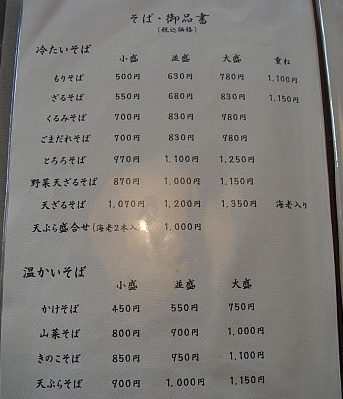 そば・御品書
(税込価格)
冷たいそば
小盛 並盛 大盛 重ね
もりそば 500円 630円 780円 1,100円
ざるそば 550円 680円 830円 1,150円
くるみそば 700円 830円 980円
ごまだれそば 700円 830円 980円
とろろそば 970円 1,100円 1,250円
野菜天ざるそば 870円 1,000円 1,150円
天ざるそば 1,070円 1,200円 1,350円 海老入り
天ぷら盛合せ(海老2本入 1,000円
温かいそば
小盛 並盛 大盛
かけそば 450円 550円 750円
山菜そば 800円 900円 1,000円
きのこそば 850円 950円 1,100円
天ぷらそば 900円 1,000円 1,150円